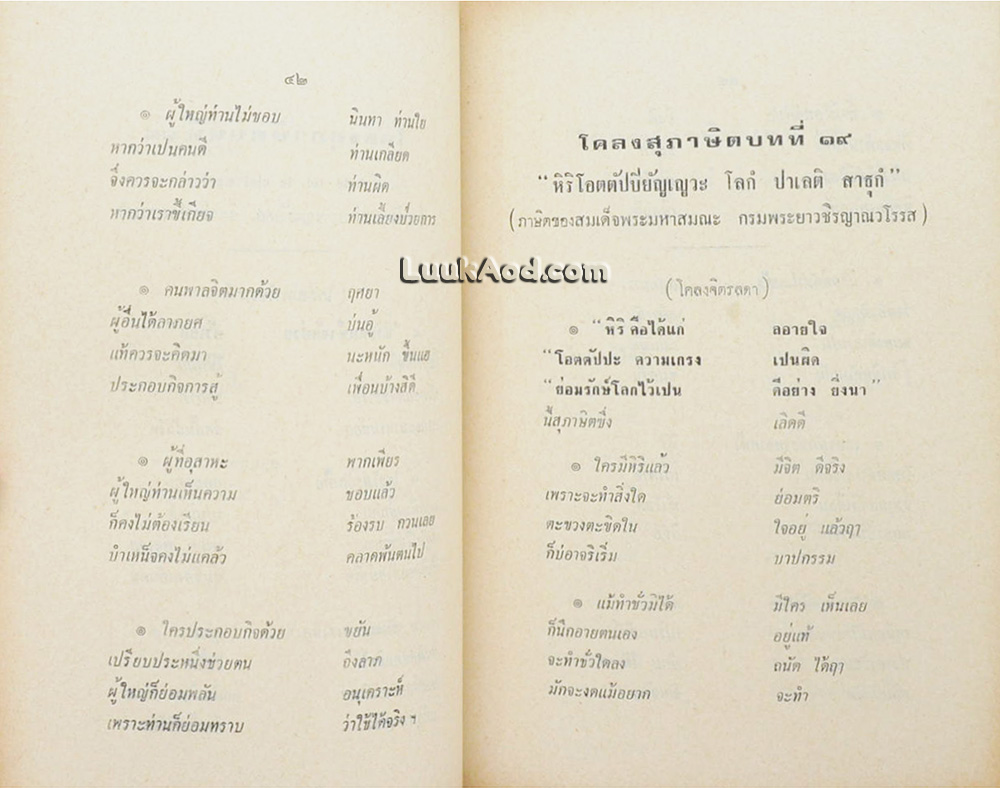 ๔๒
๏ ผู้ใหญ่ท่านไม่ชอบ นินทา ท่านใย
หากว่าเปนคนดี ท่านเกลียด
จึ่งควรจะกล่าวว่า ท่านผิด
หากว่าเราขี้เกียจ ท่านเลี้ยงป่วยการ
๏ คนพาลจิตมากด้วย ฤศยา
ผู้อื่นได้ลาภยศ บ่นอู้
แท้ควรจะคิดมา นะหนัก ขึ้นแฮ
ประกอบกิจการสู้ เพื่อนบ้างสิดี
๏ ผู้ที่อุสาหะ พากเพียร
ผู้ใหญ่ท่านเห็นความ ชอบแล้ว
ก็คงไม่ต้องเรียน ร้องรบ กวนเลย
บำเหน็จคงไม่แคล้ว คลาดพ้นตนไป
๏ ใครประกอบกิจด้วย ขยัน
เปรียบประหนึ่งช่วยตน ถึงลาภ
ผู้ใหญ่ก็ย่อมพลัน อนุเคราะห์
เพราะท่านก็ย่อมทราบ ว่าใช้ได้จริง ฯ
โคลงสุภาษิตบทที่ ๑๙
"หิริโอตตัปปิยัญเญวะ โลกํ ปาเลติ สาธุกํ"
(ภาษิตของสมเด็จพระมหาสมณะ กรมพระยาวชิรญาณวโรรส)
LuukAod.com
(โคลงจิตรลดา)
๏ "หิริ คือได้แก่ ลอายใจ
"โอตตัปปะ ความเกรง เปนผิด
"ย่อมรักษ์โลกไว้เปน ดีอย่าง ยิ่งนา"
นี้สุภาษิตซึ่ง เลิดดี
๏ ใครมีหิริแล้ว มีจิต ดีจริง
เพราะจะทำสิ่งใด ย่อมตริ
ตะขวงตะขิดใน ใจอยู่ แล้วฤา
ก็บ่อาจริเริ่ม บาปกรรม
๏ แม้ทำชั่วมิได้ มีใคร เห็นเลย
ก็นึกอายตนเอง อยู่แท้
จะทำชั่วใดลง ถนัด ได้ฤา
มักจะงดแม้อยาก จะทำ